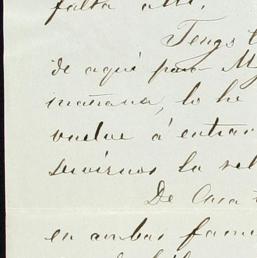 falta allí.
Tengo t
de aquí para M
mañana, lo he
vuelve á entrar
servirnos la
De Casa
en ambas fami